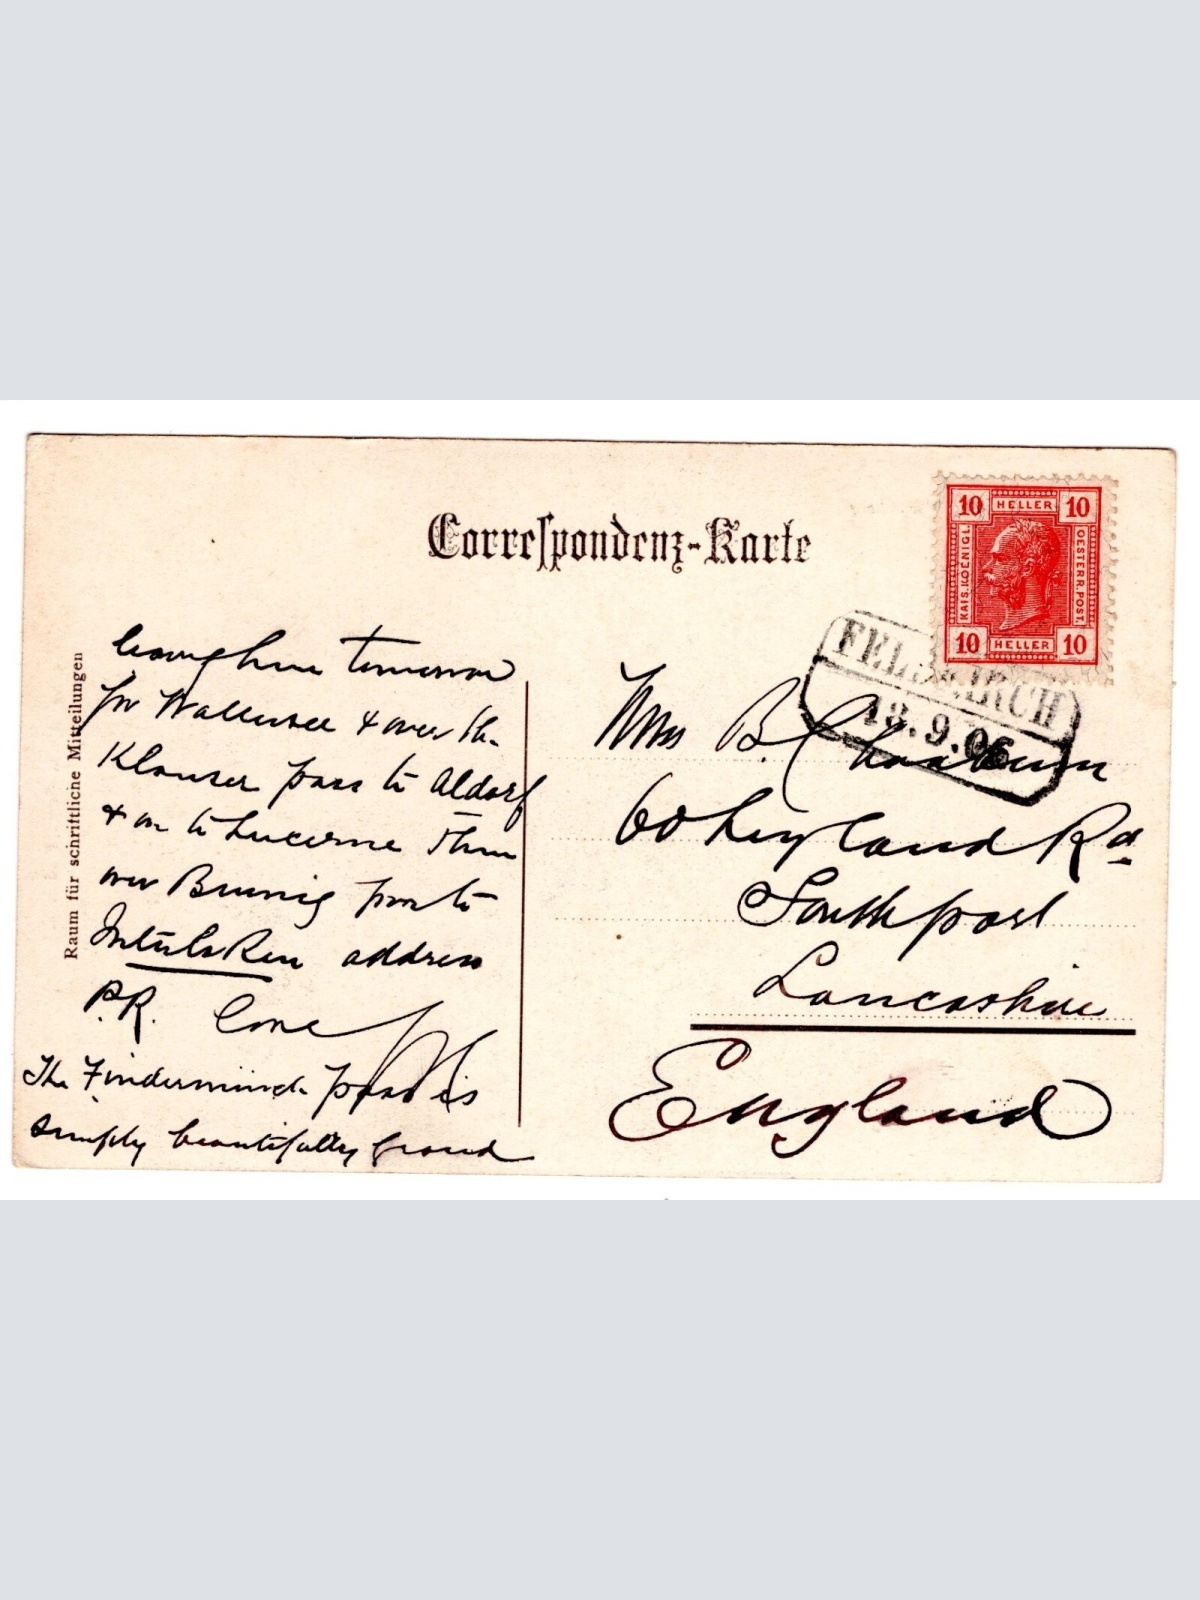 Correspondenz-Karte
10 HELLER 10
KAIS. KOENIGL.
OESTERR. POST.
10 HELLER 10
FELDKIRCH
18.9.06
Raum für schriftliche Mitteilungen
leaving here tomorrow
for Wallensee & over the
Klausen pass to Aldorf
& on to Lucerne then
over Brunig pass to
Interlaken address
P.R. love
The Findermünch pass is
simply beautifully grand
Miss B.
60 Leyland Rd
Southport
Lancashire
England